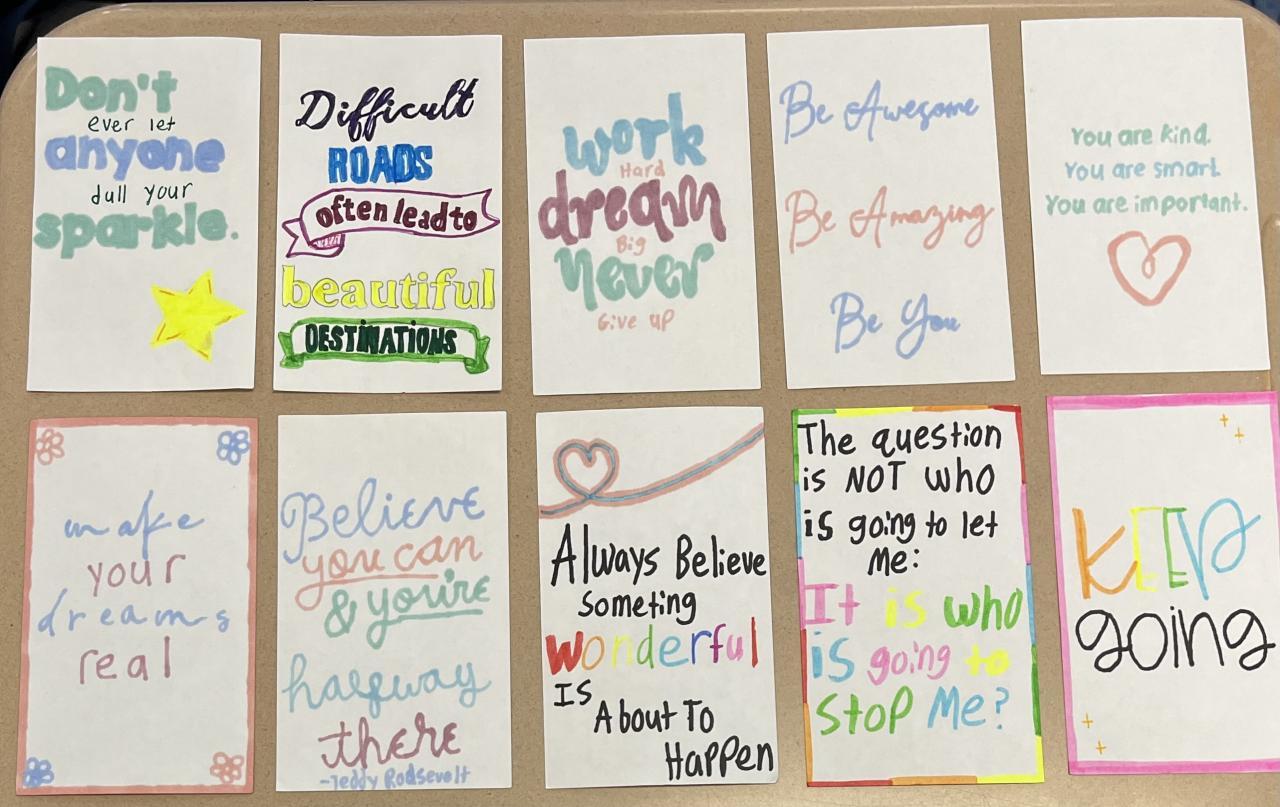 Don't
ever let
anyone
dull your
sparkle.
Difficult
ROADS
often lead to
beautiful
DESTINATIONS
work
Hard
dream
Big
never
Give up
Be Awesome
Be Amazing
Be You
You are kind.
You are smart.
You are important.
make
your
dreams
real
Believe
you can
& you're
halfway
there
-Teddy Rodsevelt
Always Believe
Someting
Wonderful
Is
About To
Happen
The question
is NOT who
is going to let
Me:
It is who
is going to
Stop Me?
KEEP
going